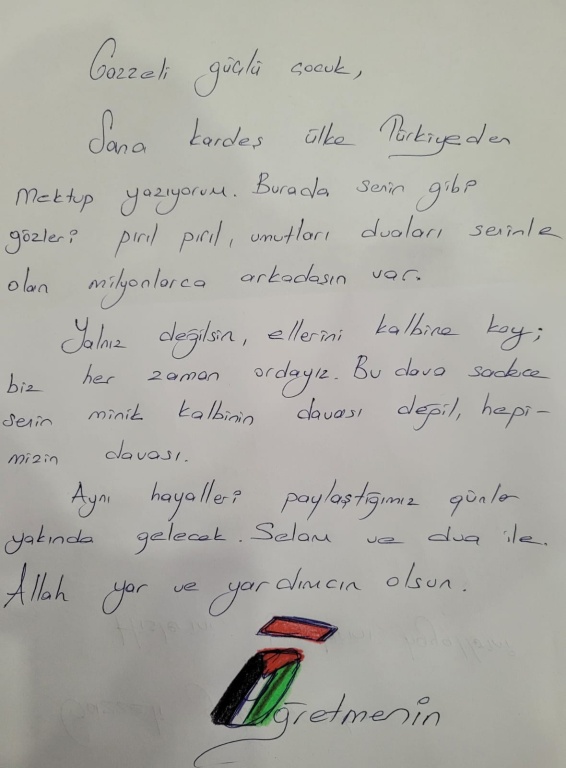 Gazzeli güçlü çocuk,
Sana kardeş ülke Türkiyeden
mektup yazıyorum. Burada senin gibi
gözleri pırıl pırıl, umutları duaları seninle
olan milyonlarca arkadaşın var.
Yalnız değilsin, ellerini kalbine koy;
biz her zaman ordayız. Bu dava sadece
senin minik kalbinin davası değil, hepi-
mizin davası.
Aynı hayalleri paylaştığımız günler
yakında gelecek. Selam ve dua ile.
Allah yar ve yardımcın olsun.
Öğretmenin